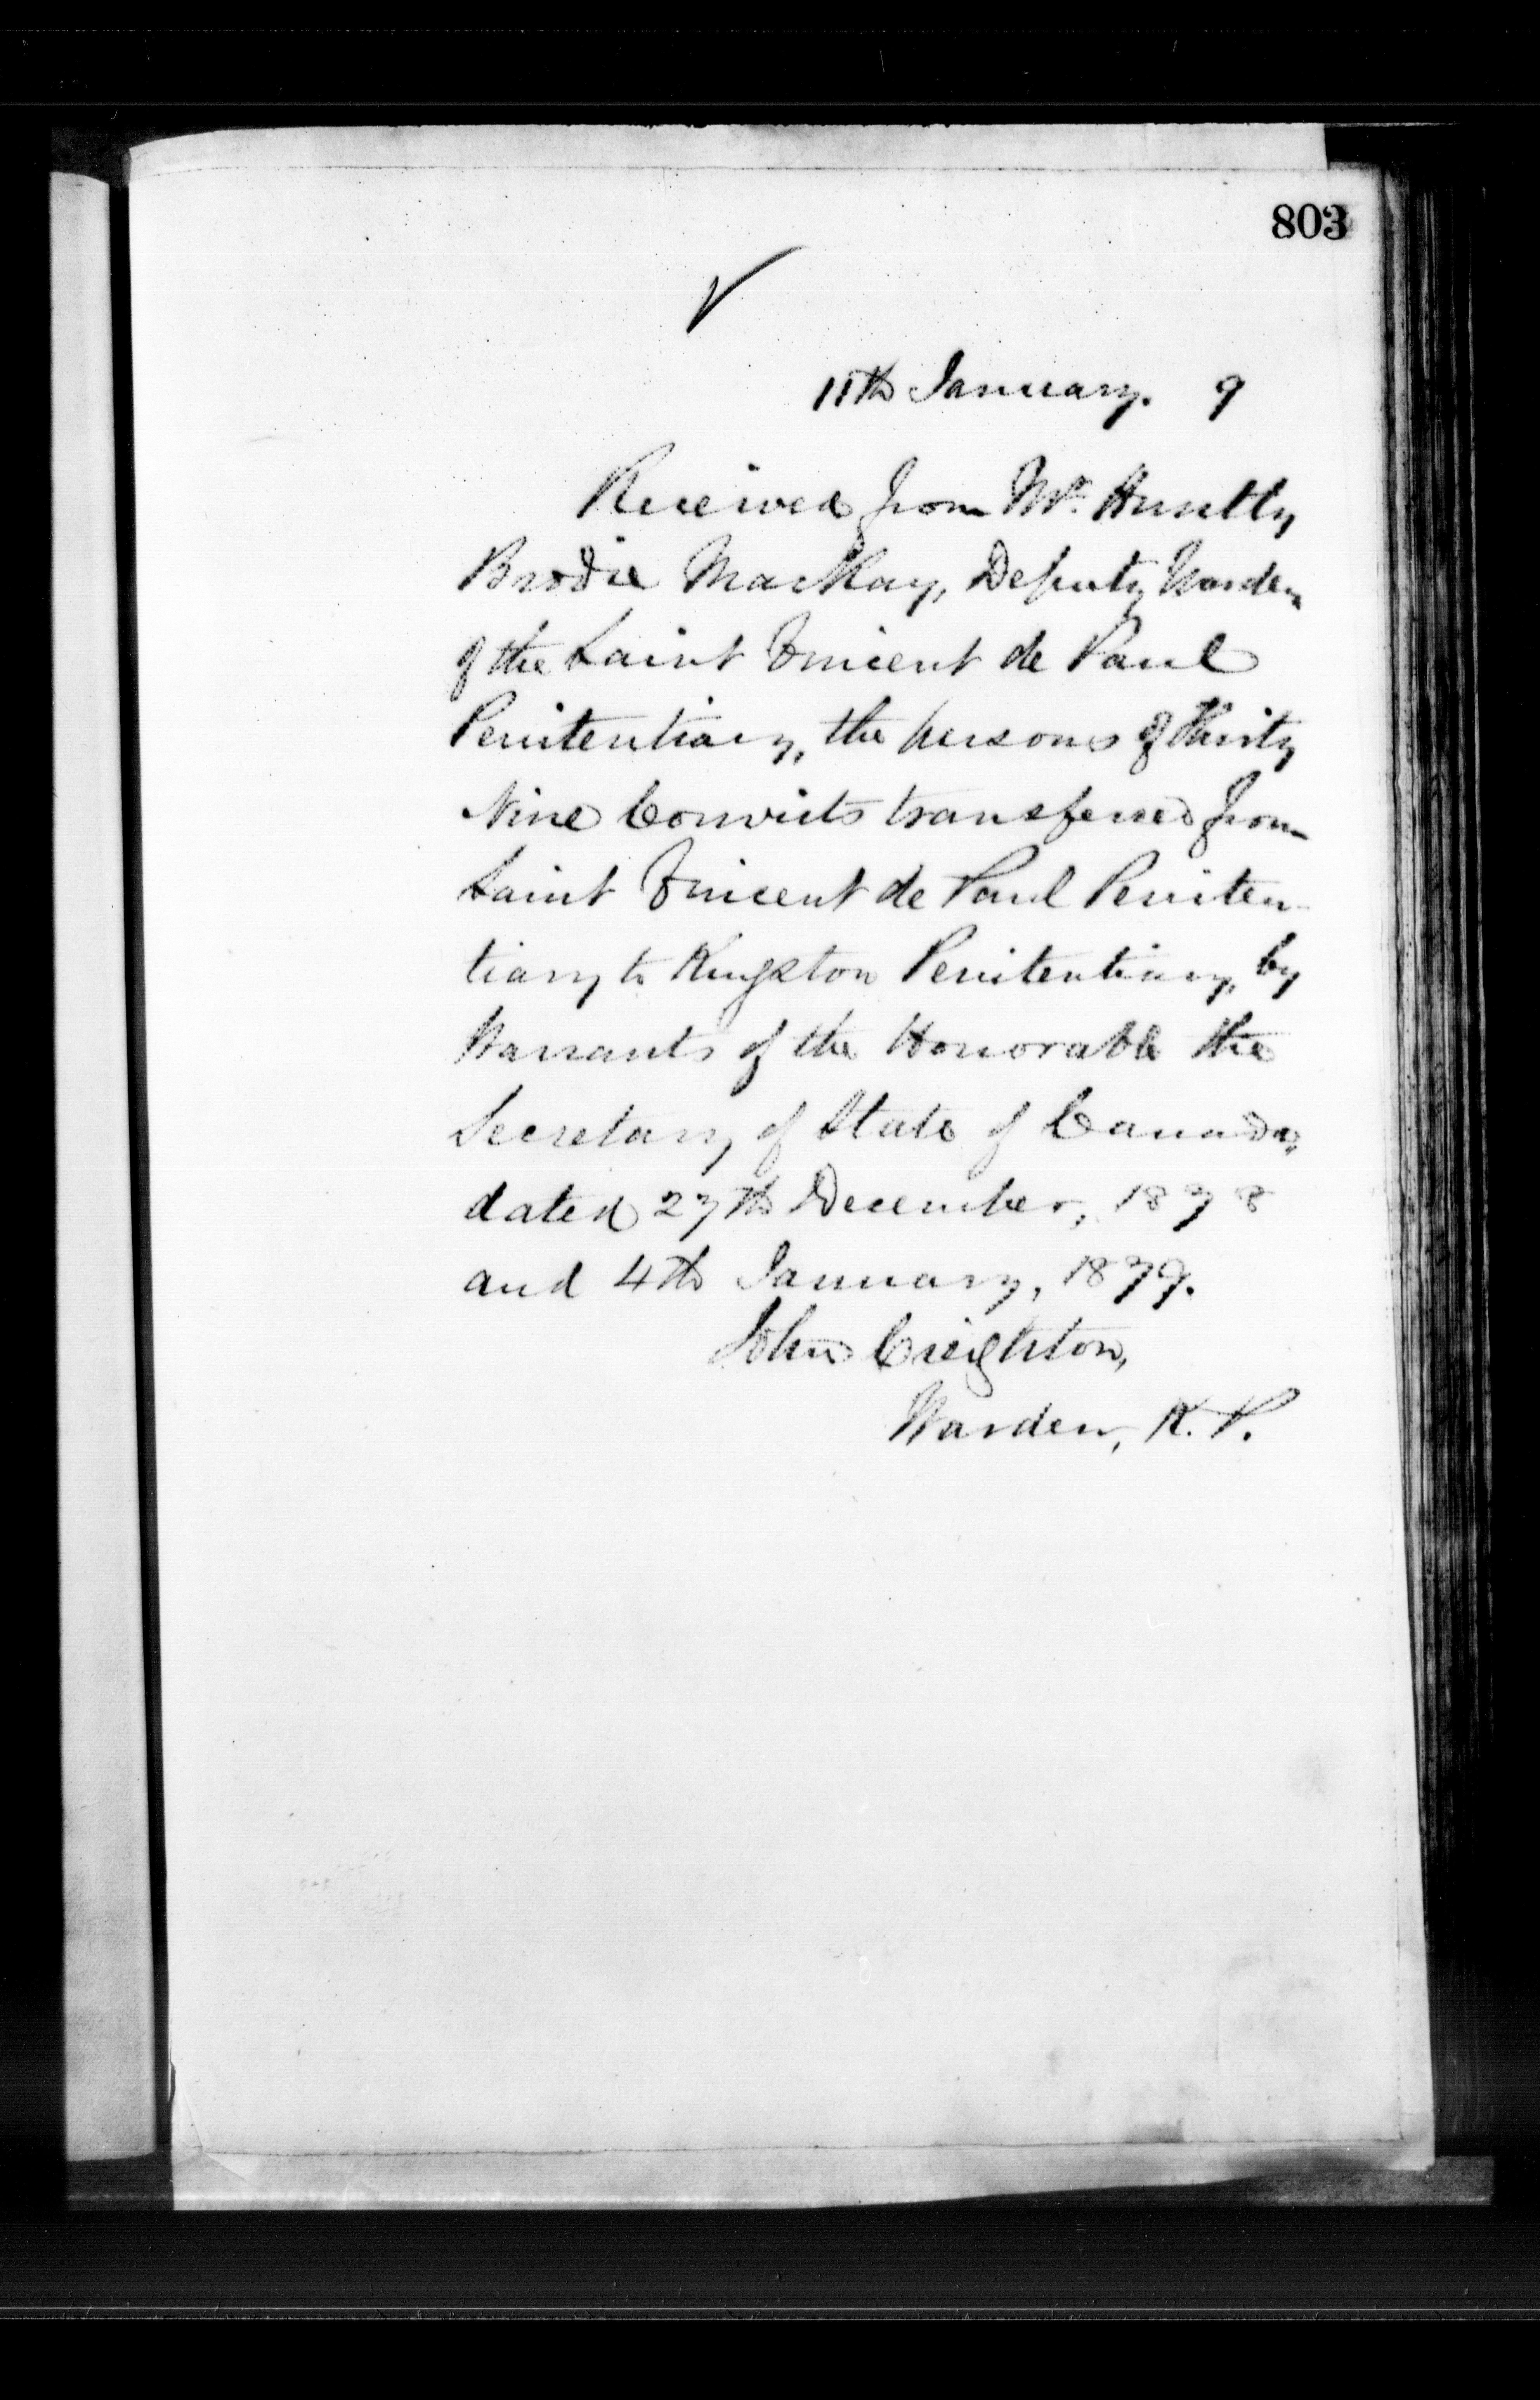 803
✓
11th January. 9
Received from Mr. Huntly
Brodie MacKay, Deputy Warden
of the Saint Vincent de Paul
Penitentiary, the persons of Thirty
Nine Convicts transferred from
Saint Vincent de Paul Peniten-
tiary to Kingston Penitentiary, by
Warrants of the Honorable the
Secretary of State of Canada,
dated 27th December, 1878
and 4th January, 1879.
John Creighton,
Warden, K. P.